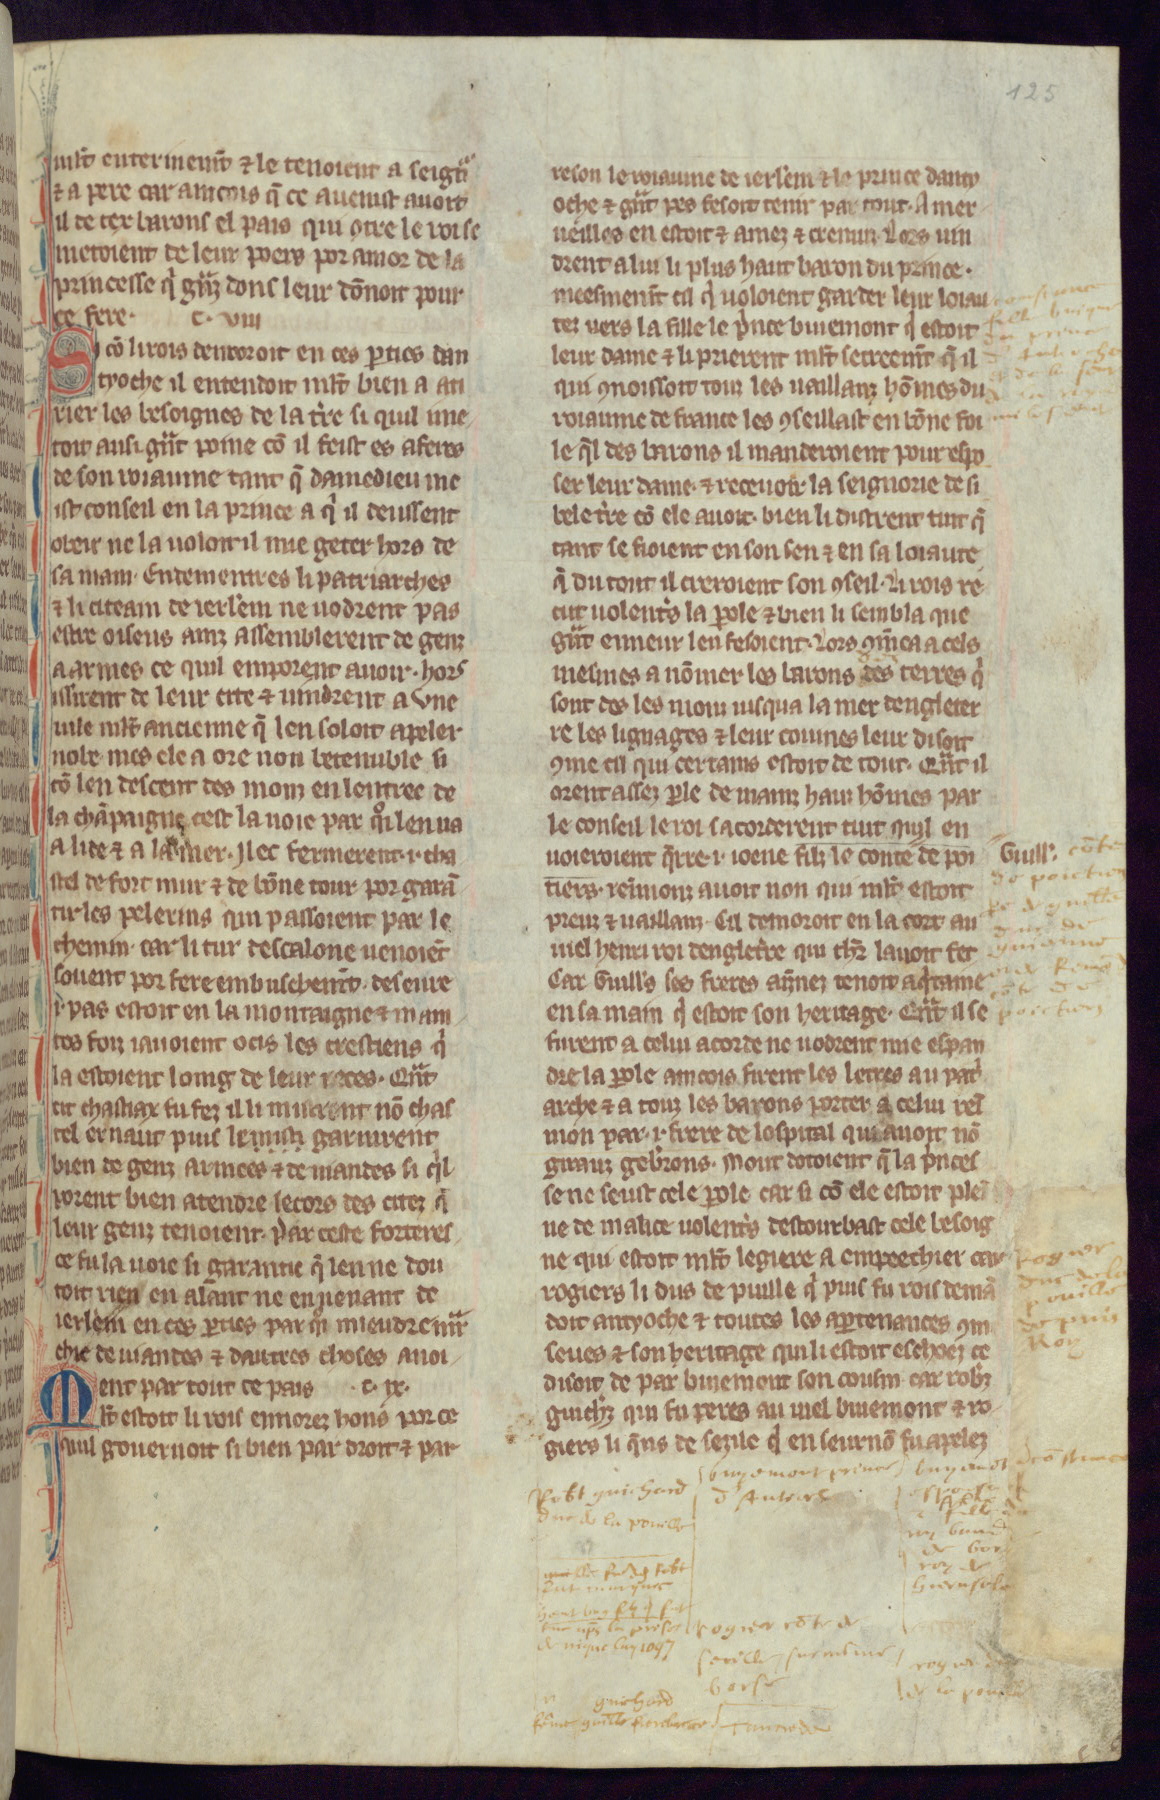 125
mlt enterinemt ⁊ le tenoient a seignr
⁊ a pere car aincois q̃ ce auenist auoit
il de tex barons el pais qui 9tre le roi se
metoient de leur poeir por amor de la
princesse q̇ gñz dons leur dõnoit pour
ce fere. c. viii
Si cõ li rois demoroit en ces ꝑties dan
tyoche il entendoit mlt bien a ati
rier les besoignes de la tẽre si quil me
toit ausi gñt poine cõ il feist es aferes
de son roiaume tant q̃ damedieu me
ist conseil en la prince a q̇ il deussent
obeir ne la uoloit il mie geter hors de
sa main. Endementres li patriarches
⁊ li citeain de ierlem ne uodrent pas
estre oiseus ainz assemblerent de genz
a armes ce quil en porent auoir. hors
issirent de leur cite ⁊ uindrent a une
uile mlt ancienne q̃ len soloit apeler
nobe. mes ele a ore non betenuble si
cõ len descent des monz en lentree de
la chãpaigne cest la uoie par q̊i len ua
a lide ⁊ a la mer. Ilec fermerent .i. cha
stel de fort mur ⁊ de bõne tour por garã
tir les pelerins qui passoient par le
chemin. car li tur descalone uenoiẽt
souent por fere embuschemt. deseure
.i. pas estoit en la montaigne ⁊ main
tes foiz i auoient ocis les crestiens q̇
la estoient loing de leur receS. Qñt
cit chastiax fu fez il li mistrent nõ chas
tel ernaut puis le garnirent
bien de genz armees ⁊ de uiandes si q̃l
porent bien atendre secors des citez q̃
leur genz tenoient. par ceste forteres
ce fu la uoie si garantie q̃ len ne dou
toit rien en alãnt ne en uenant de
ierlem en ces ꝑties par q̊i mieudre mr̃
chie de uiandes ⁊ dautres choses auoi
ent par tout ce pais c. ix.
Mlt estoit li rois ennorez hons por ce
quil gouernoit si bien par droit ⁊ par
reson le roiaume de ierlem ⁊ le prince danty
oche ⁊ gñt pes fesoit tenir par tout. A mer
ueilles en estoit ⁊ amez ⁊ cremuz. Lors uin
drent a lui li plus haut baron du prince.
meesmemt cil q̇ uoloient garder leur loiau
tez uers la fille le ṗnce buiemont q̇ estoit
leur dame ⁊ li prierent mlt secreemt q̃ il
qui 9noissoit touz les uaillanz hõmes du
roiaume de france les 9seillast en bõne foi
le q̃l des barons il manderoient pour espo
ser leur dame. ⁊ receuoir la seignorie de si
bele tẽre cõ ele auoit. bien li distrent tuit q̃
tant se fioient en son sen ⁊ en sa loiaute
q̃ du tout il creroient son 9seil. Li rois re
cut uolent̃s la ꝑole ⁊ bien li sembla que
gñt enneur len fesoient. Lors 9mẽca a cels
meismes a nõmer les barons des terres q̇
sont des les monz iusqua la mer dengleter
re les lignages ⁊ leur couines leur disoit
9me cil qui certains estoit de tout. Qñt il
orent assez ꝑle de mainz hauz hõmes par
le conseil le roi sacorderent tuit quil en
uoieroient q̃rre .i. ioene filz le conte de poi
tiers. reimonz auoit non qui mlt estoit
preuz ⁊ uaillanz. Cil demoroit en la cort au
uiel henri roi dengletẽre qui chr̃ lauoit fet
Car Guill̃s ses freres aiñez tenoit aq̃taine
en sa main q̇ estoit son heritage. Qñt il se
furent a celui acorde ne uodrent mie espan
dre la ꝑole aincois firent les letres au pat̃
arche ⁊ a touz les barons porter a celui rei
mon par .i. frere de lospital qui auoit nõ
girauz gebr̃ons. Mout dotoient q̃ la ṗnces
se ne seust cele ꝑole car si cõ ele estoit plei
ne de malice uolent̃s destourbast cele besoig
ne qui estoit mlt legiere a empeechier car
rogiers li dus de puille q̇ puis fu rois demã
doit antyoche ⁊ toutes les aꝑtenances 9me
seues ⁊ son heritage qui li estoit escheoiz ce
disoit de par buiemont son cousin. car rob̃z
guich̃z qui fu peres au uiel buiemont ⁊ ro
giers li q̃ns de sezile q̇ en seurnõ fu apelez
Guill. cõte
de poictiers
Rogier
duc de la
pouille
de puis
Roy
Robt guichard
duc de la pouille
buyemont prince
d'Antioche
rogier cõte de
borse
guichard
tancrede